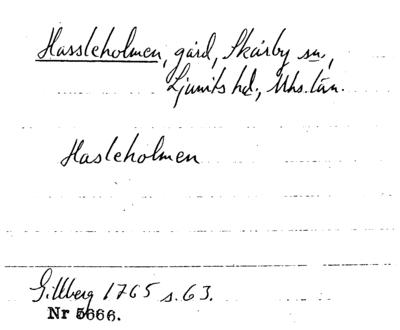 Hassleholmen, gård, Skårby sn,
Ljunits hd., Mhs. län.
Hasleholmen
Gillberg 1765 s. 63.
Nr 5666.